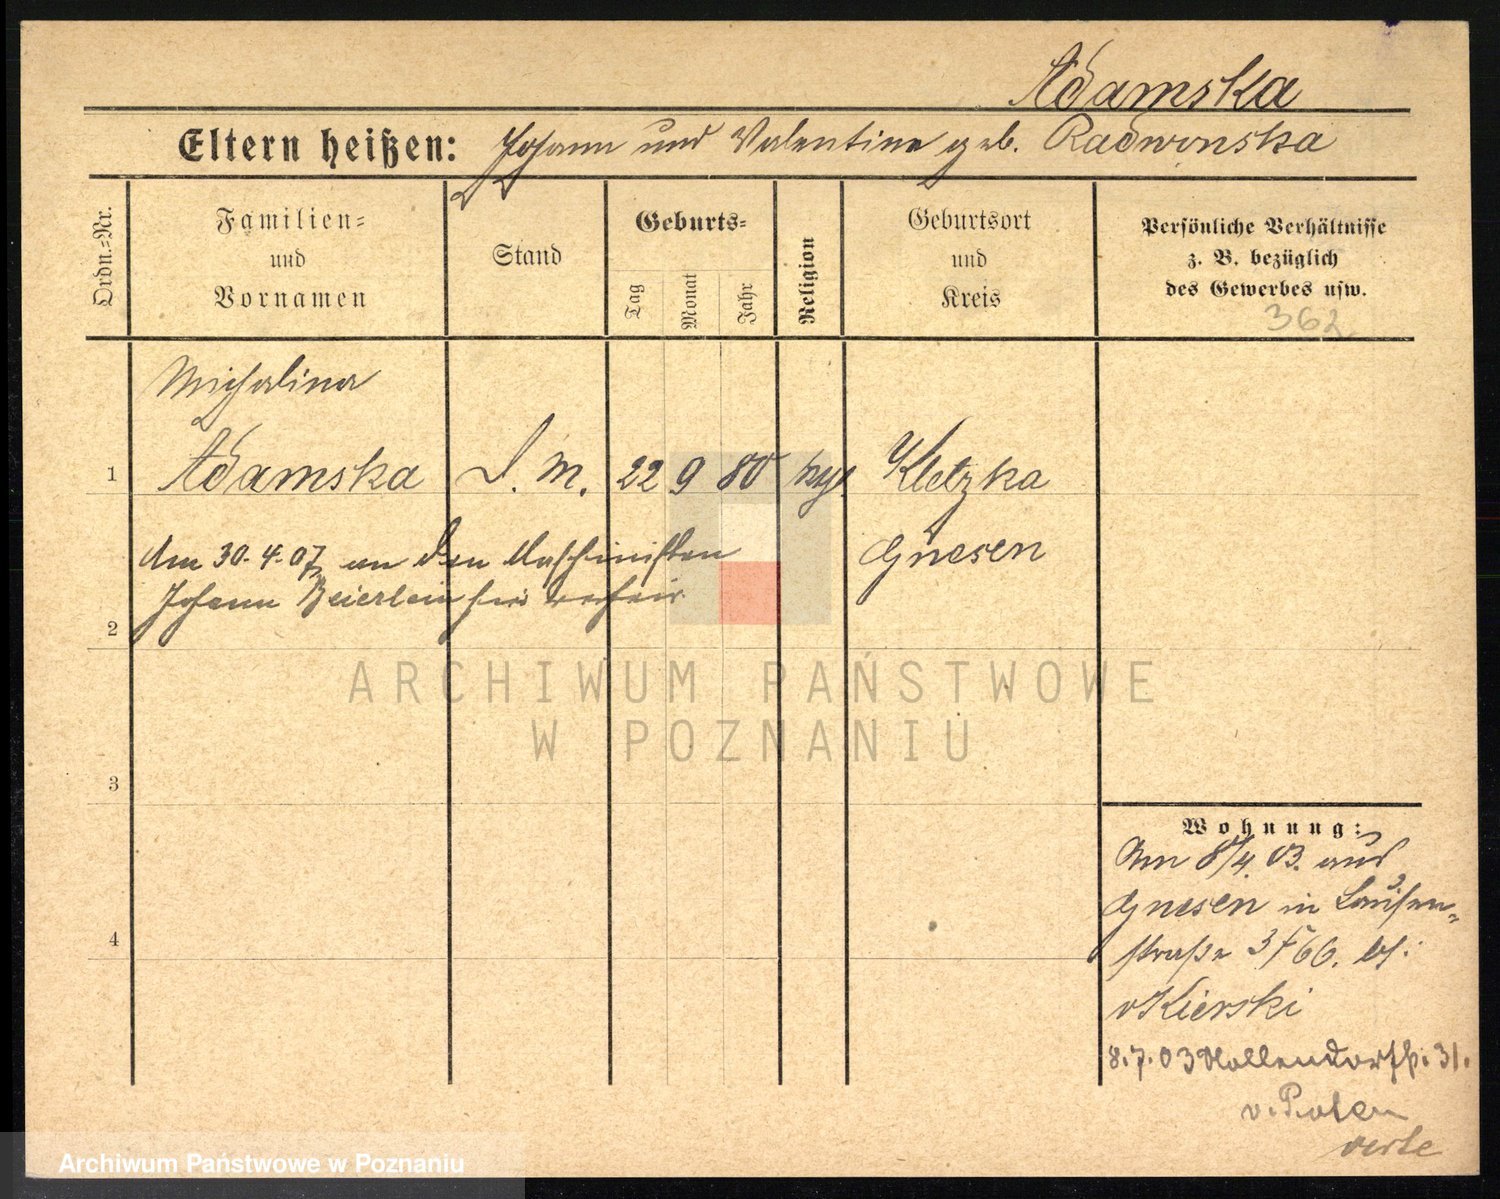 Adamska
Eltern heißen: Johann und Valentine geb. Radwonska
Ordn.=Nr.
Familien=
und
Vornamen
Stand
Geburts=
Tag
Monat
Jahr
Religion
Geburtsort
und
Kreis
Persönliche Verhältnisse
z. B. bezüglich
des Gewerbes usw.
362
Michalina
1 Adamska D. M. 22 9 80 Kletzka
Gnesen
Am 30.4.07 an den Maschinisten
Johann Beierlein hier verheir.
2
3
4
Wohnung:
Am 8/4. 03. aus
Gnesen in Luisen=
straße 3 bei
v Kierski
8.7.03 Nollendorfstr. 31.
v.
verte
ARCHIWUM PAŃSTWOWE
W POZNANIU
Archiwum Państwowe w Poznaniu